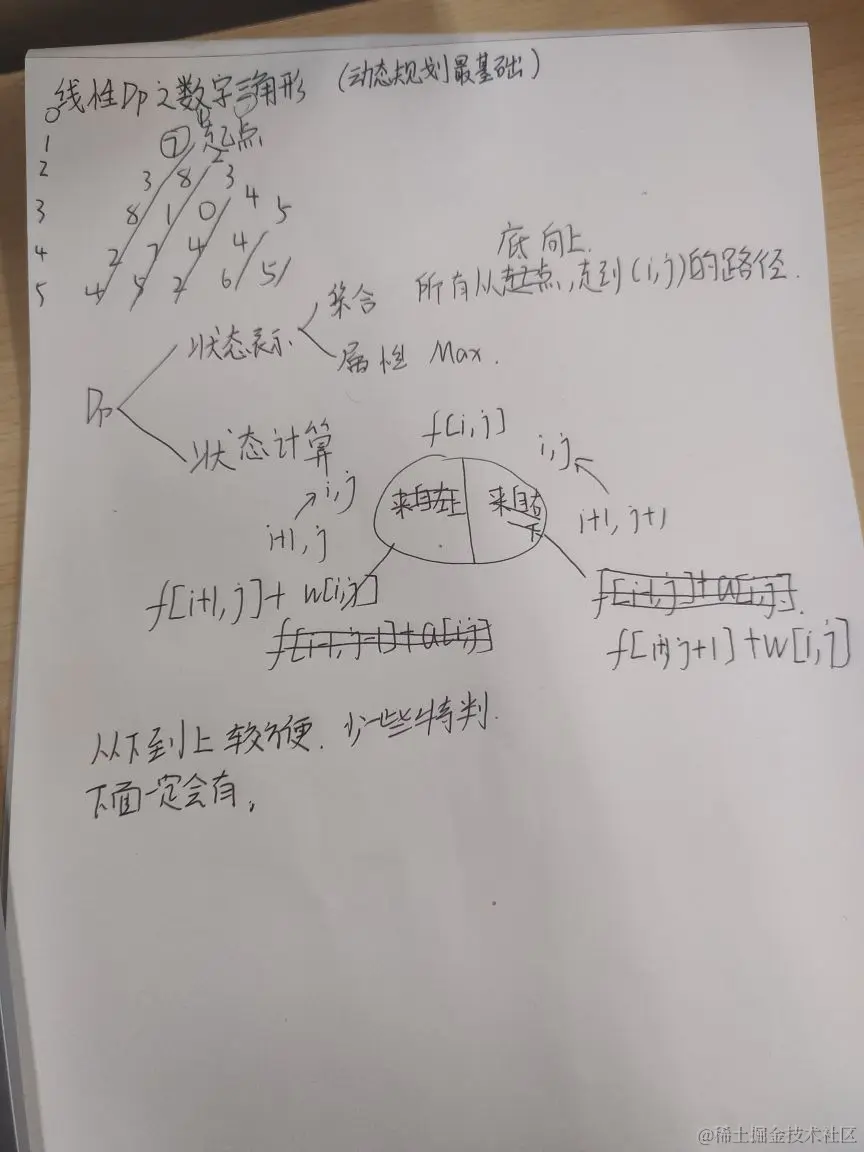 线性Dp之数字三角形 (动态规划最基础)
0
1 ⑦ 起点
2 3 8 2
3 8 1 0 3 4 5
4 2 7 4 4
5 4 5 2 6 5
底向上.
所有从起点,走到(i,j)的路径.
状态表示 集合
属性 Max.
Dp
状态计算
f[i,j]
i,j i,j
i+1,j 来自左上 来自右下 i+1,j+1
f[i+1,j]+w[i,j] f[i-1,j]+a[i,j].
f[i-1,j-1]+a[i,j] f[i+1,j+1]+w[i,j]
从下到上较方便.少一些特判.
下面一定会有,
@稀土掘金技术社区